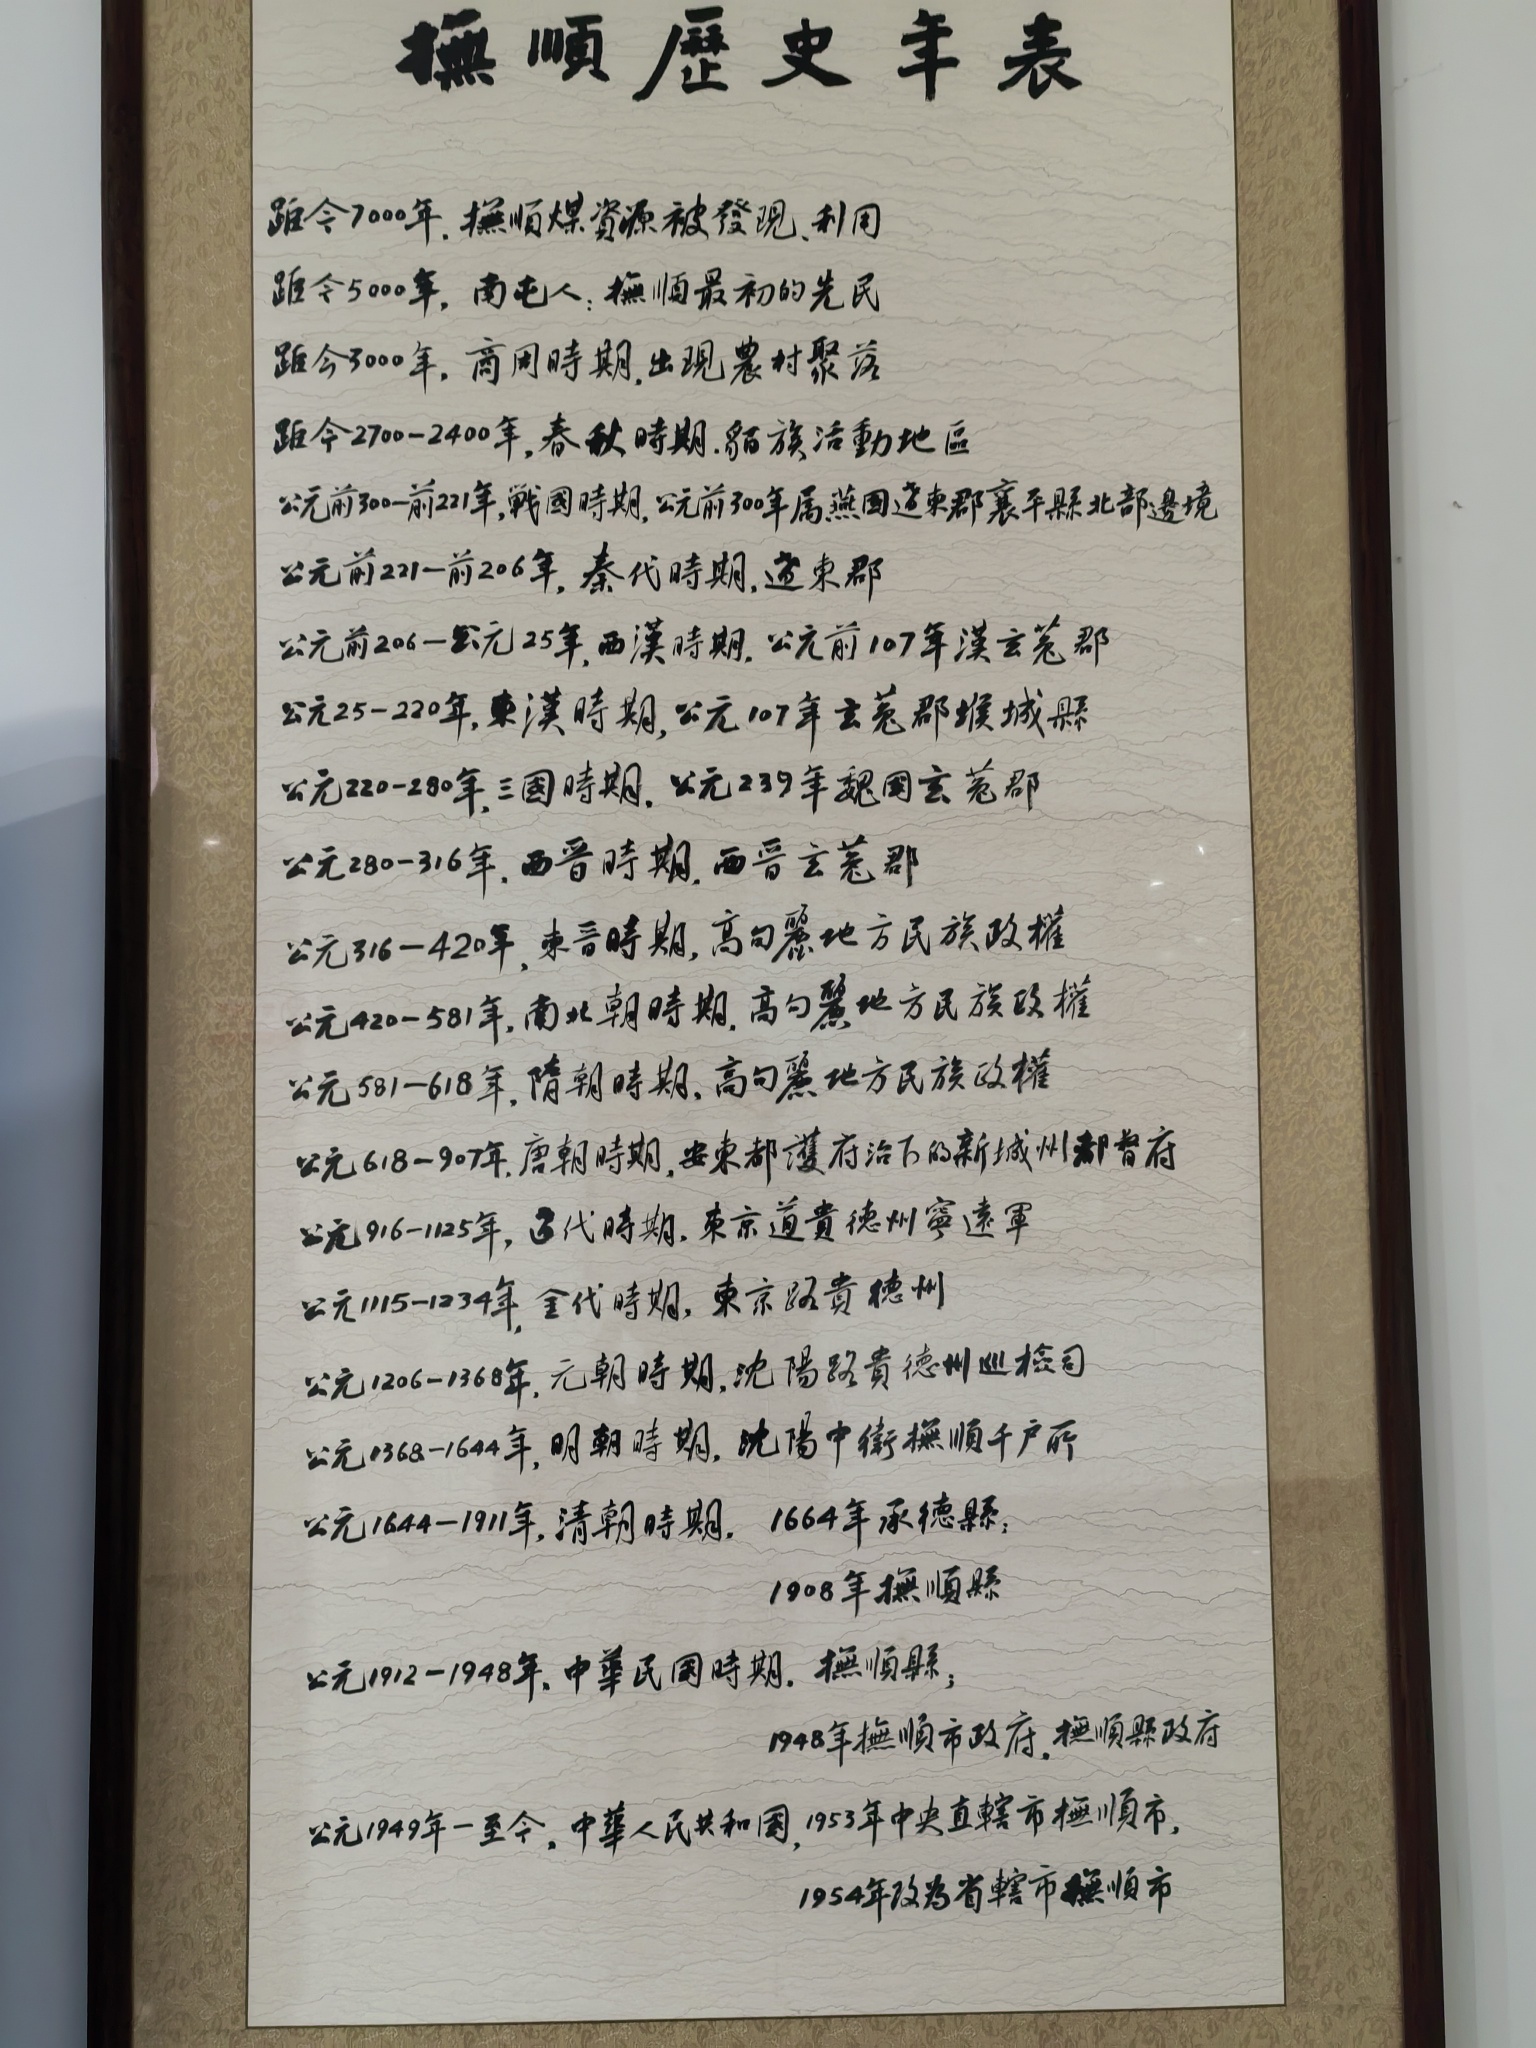 撫順歷史年表
距今7000年，撫順煤資源被發現、利用
距今5000年，南屯人：撫順最初的先民
距今3000年，商周時期，出現農村聚落
距今2700-2400年，春秋時期，貊族活動地區
公元前300-前221年，戰國時期，公元前300年属燕國遼東郡襄平縣北部邊境
公元前221-前206年，秦代時期，遼東郡
公元前206-公元25年，西漢時期，公元前107年漢玄菟郡
公元25-220年，東漢時期，公元107年玄菟郡堠城縣
公元220-280年，三國時期，公元239年魏國玄菟郡
公元280-316年，西晉時期，西晉玄菟郡
公元316-420年，東晉時期，高句麗地方民族政權
公元420-581年，南北朝時期，高句麗地方民族政權
公元581-618年，隋朝時期，高句麗地方民族政權
公元618-907年，唐朝時期，安東都護府治下的新城州都督府
公元916-1125年，辽代時期，東京道貴德州寧遠軍
公元1115-1234年，金代時期，東京路貴德州
公元1206-1368年，元朝時期，沈陽路貴德州巡檢司
公元1368-1644年，明朝時期，沈陽中衛撫順千户所
公元1644-1911年，清朝時期，1664年承德縣；
1908年撫順縣
公元1912-1948年，中華民國時期，撫順縣；
1948年撫順市政府，撫順縣政府
公元1949年-至今，中華人民共和國，1953年中央直轄市撫順市，
1954年改為省轄市撫順市